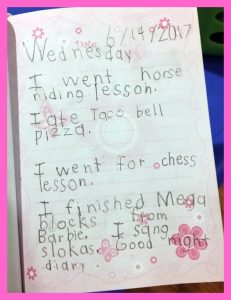 Date 6/14/2017
Wednesday
I went horse
riding lesson.
I ate Taco bell
pizza.
I went for chess
lesson.
I finished Mega
blocks from
Barbie. I sang
slokas. Good night
diary